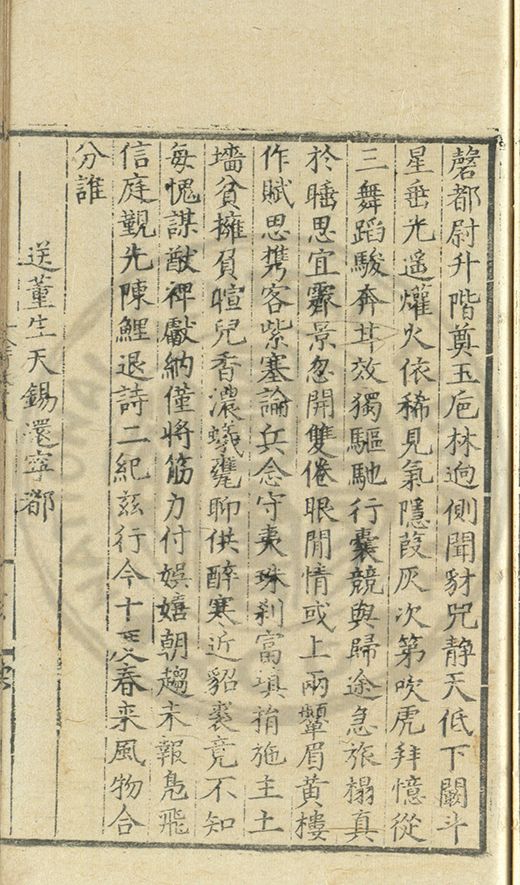 磬都尉升階奠玉巵林逈側聞豺兕静天低下闞斗
星垂光遥爟火依稀見氣隱葭灰次第吹虎拜憶從
三舞蹈駿奔甘效獨驅馳行囊競與歸途急旅榻真
於睡思宜霽景忽開雙倦眼閒情或上兩顰眉黄樓
作賦思携客紫塞論兵念守夷珠刹富填捐施主土
墻貧擁負暄兒香濃蟻甕聊供醉寒近貂裘竟不知
每愧謀猷裨獻納僅將筋力付娯嬉朝趨未報鳬飛
信庭覲先陳鯉退詩二紀兹行今十至春来風物合
分誰
送董生天錫還寧都